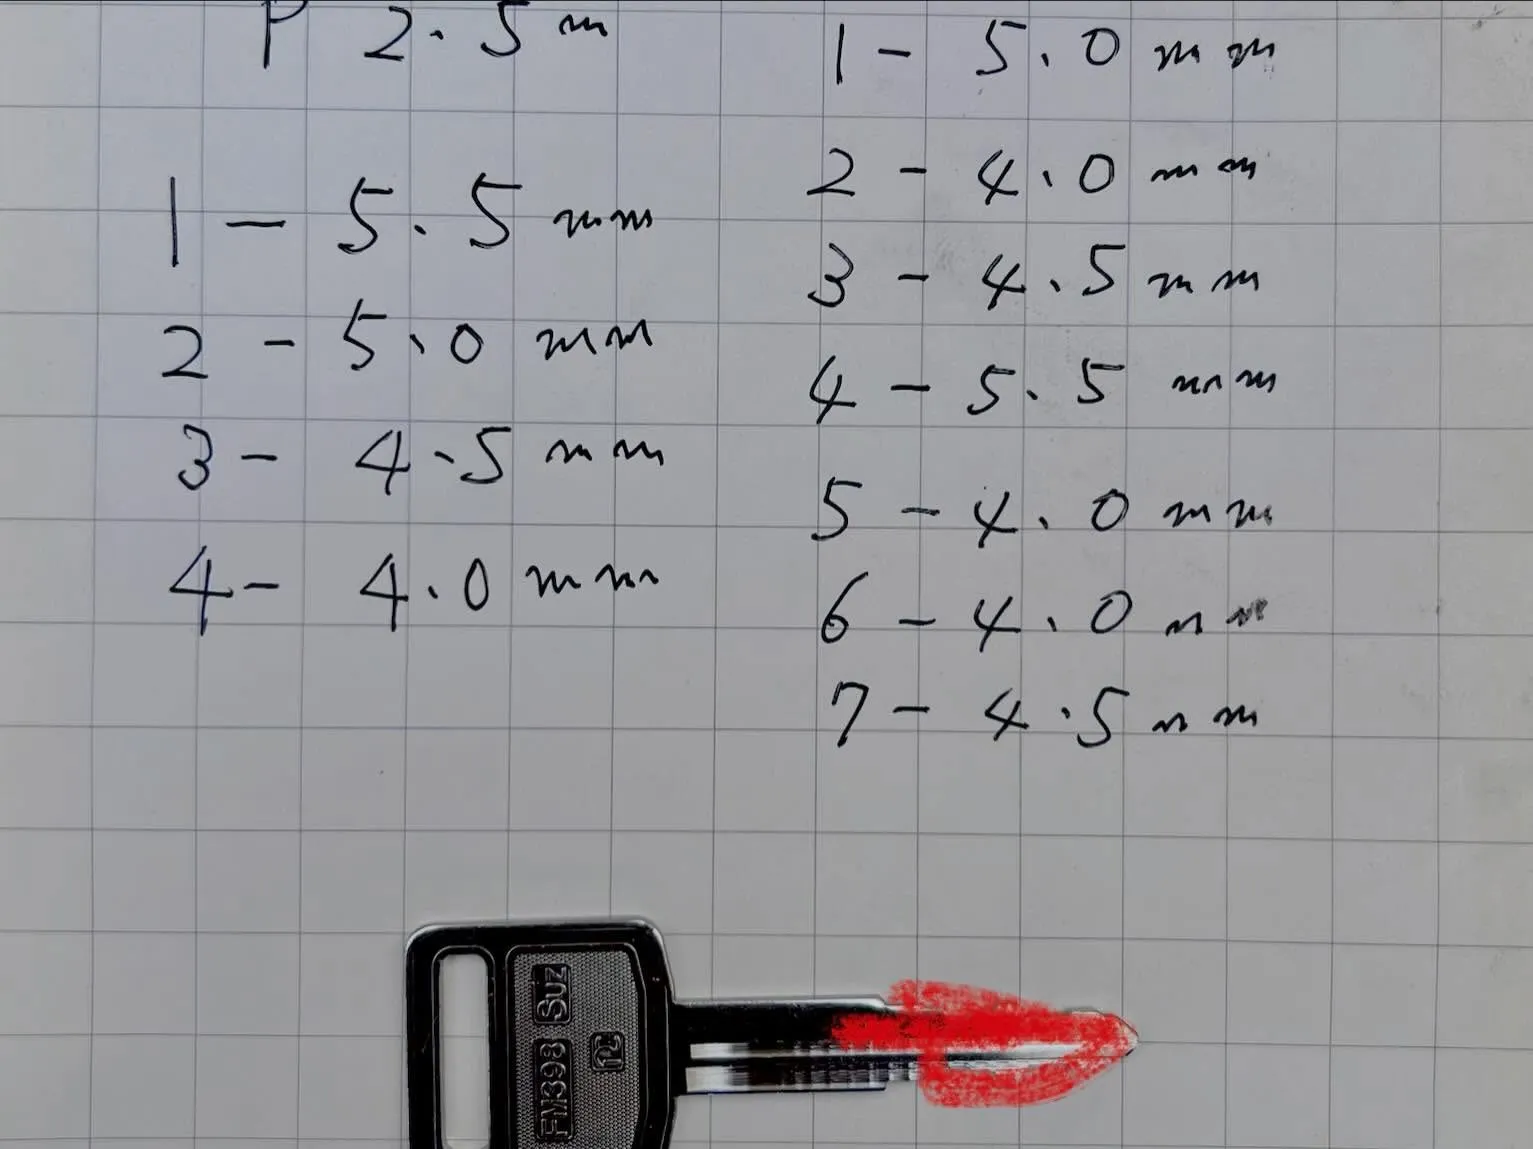 P 2.5 m
1 - 5.5 mm
2 - 5.0 mm
3 - 4.5 mm
4 - 4.0 mm
1 - 5.0 mm
2 - 4.0 mm
3 - 4.5 mm
4 - 5.5 mm
5 - 4.0 mm
6 - 4.0 mm
7 - 4.5 mm
Suz
FM398